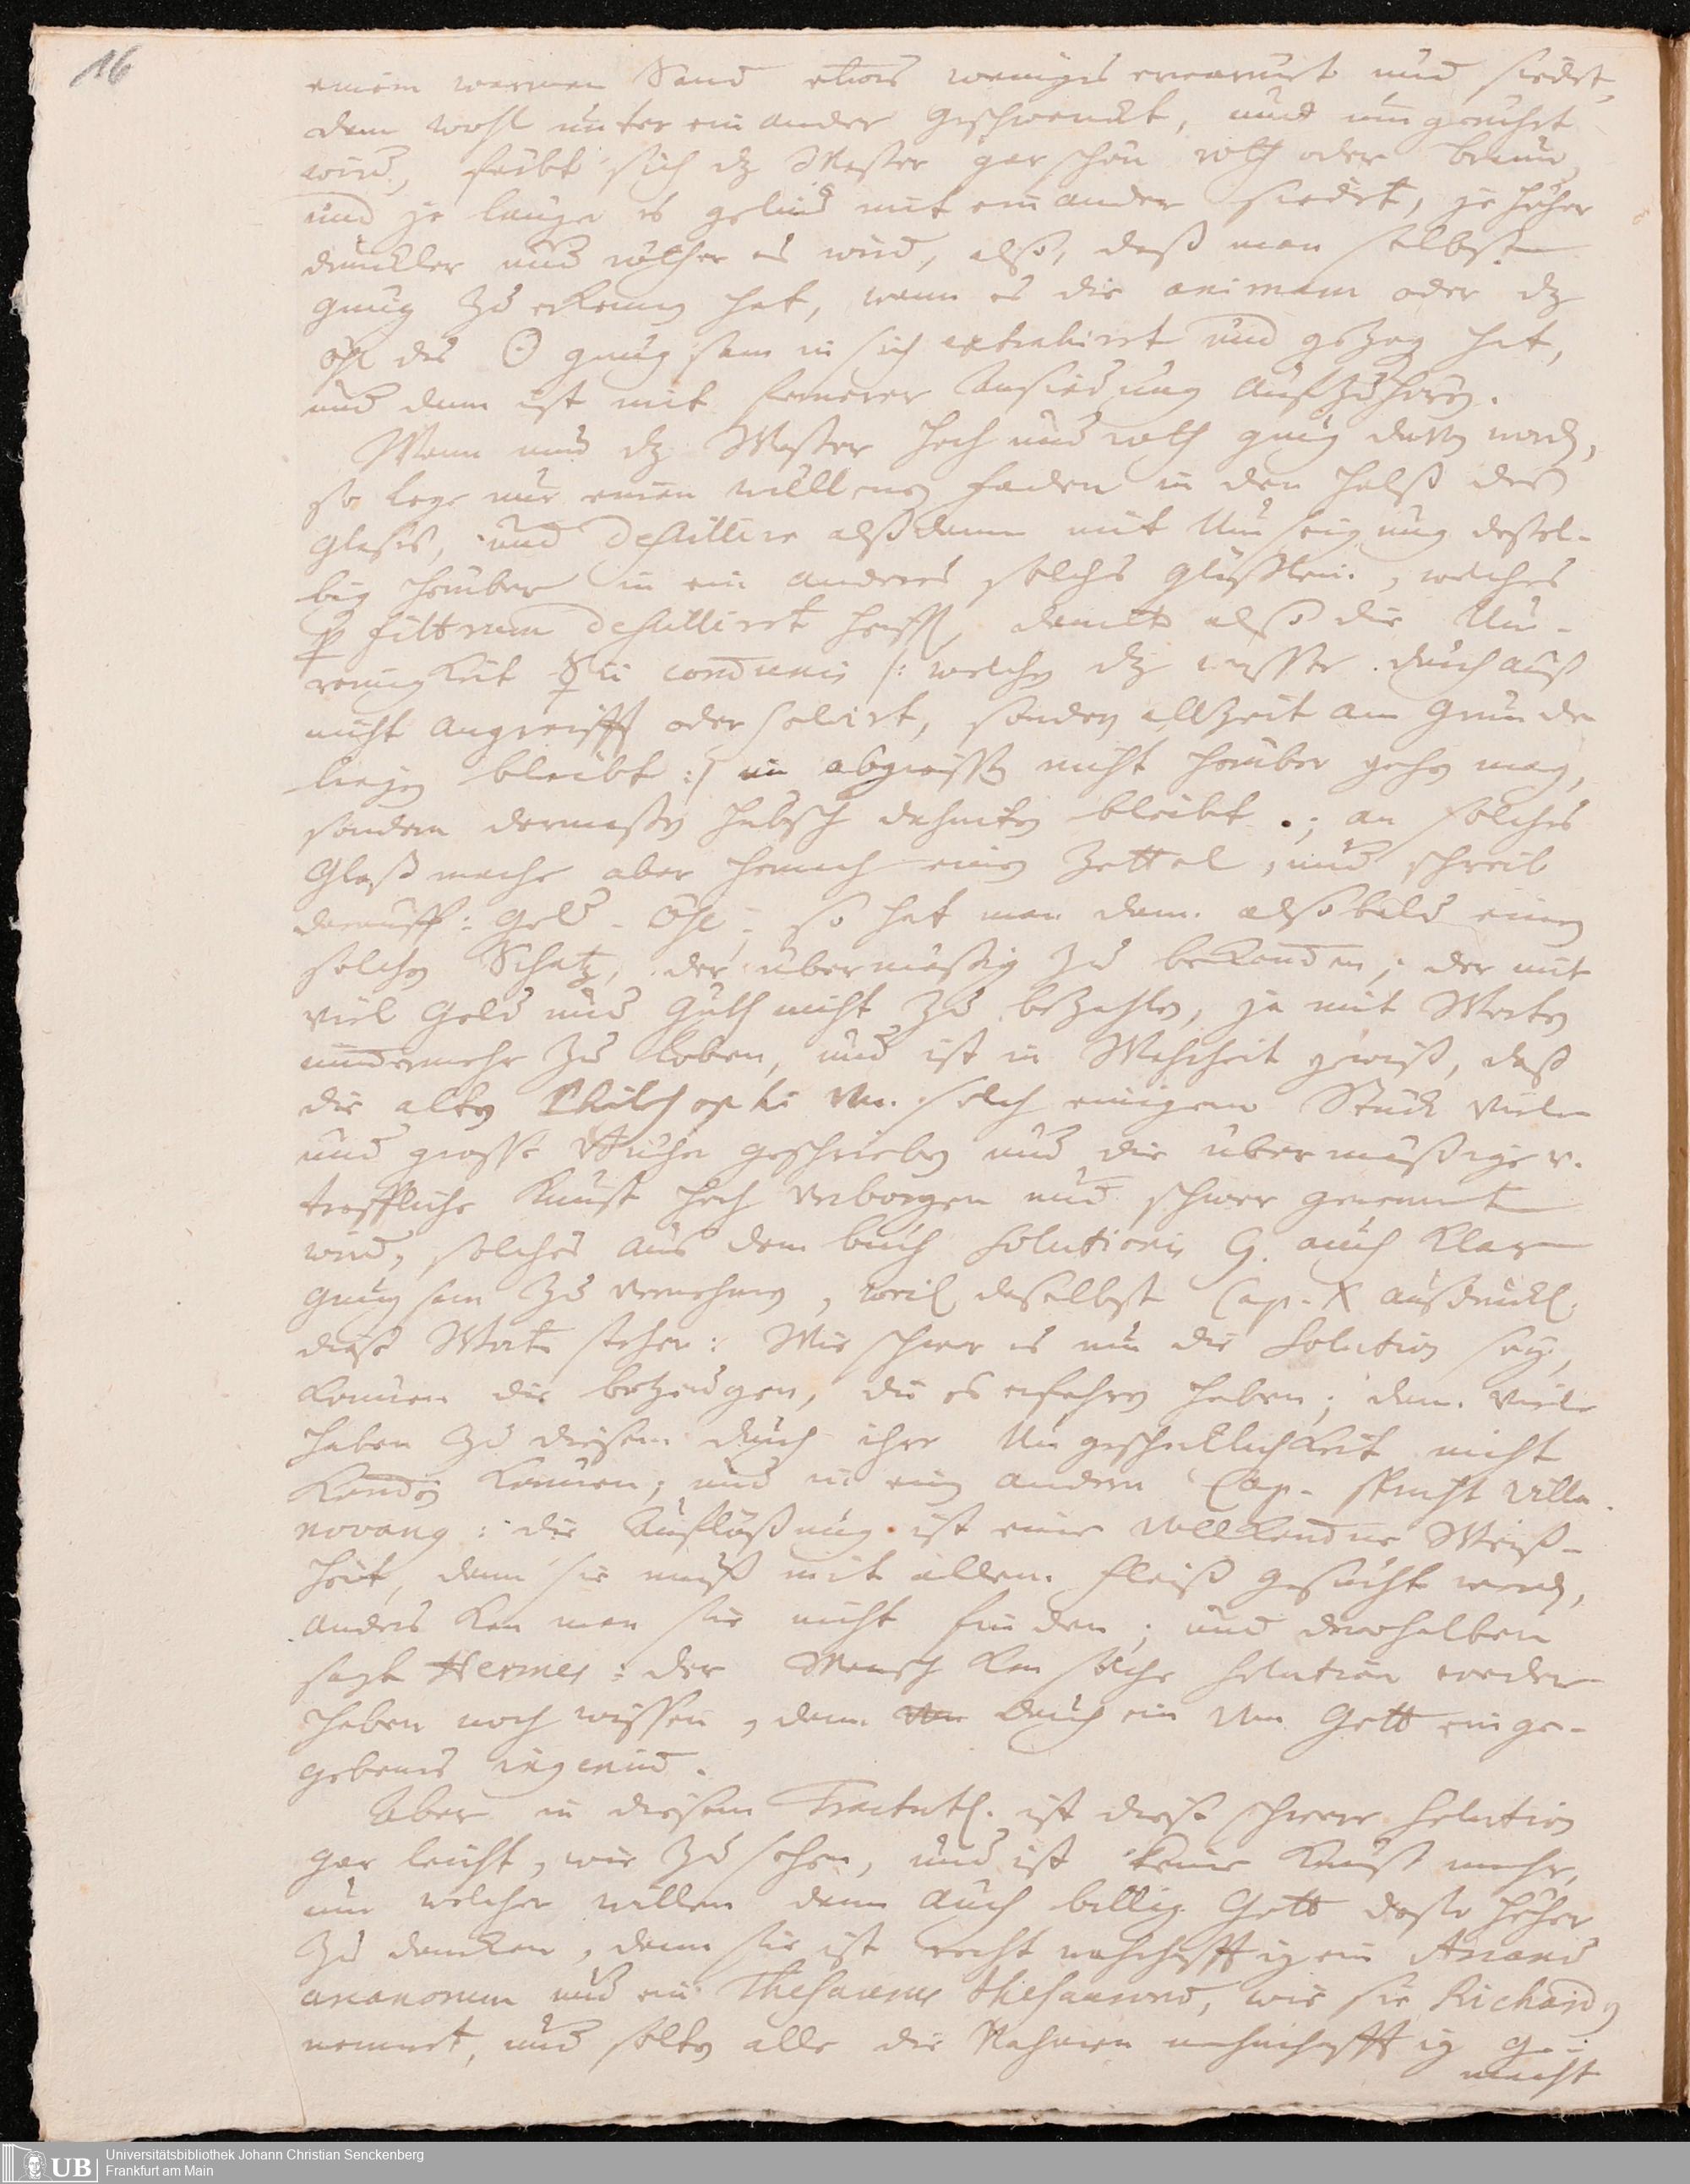 16
einem warmen Sand etwas weniges erwarmet und siedet,
dann wohl unter einander geschwenckt, und umgeruhrt
wird, färbt sich dz Waßer gar schön roth oder braun,
und je langer es gelind mit einander siedet, je höher
dunckler und röther es wird, also, daß man selbsten
gnug zu erkenn hat, wann es die animam oder dz
öhl des ☉ gnugsam in sich extrahirt und gezog hat,
und dann ist mit fernerer ansiedung aufzuhörn.
Wann nun dz Waßer hoch und roth gnug davon word,
so lege nur einen wüllenen faden in den Halß des
Glases, und destillire alßdann mit Umseigung deßel-
big herüber in ein anderes solches Gläßlein, welches
p filtrum destillirt heist, damit also die Un-
reinigkeit ☿ii communis /: welche dz waßer durchauß
nicht angreifft oder solvirt, sondern allzeit am Grunde
liegen bleibt :/ nicht herüber gehen mag,
sondern dermaßen hübsch dahinten bleibt; an solches
Glaß mache aber hernach einen Zettel, und schreib
darauff: Gold-Öhl; so hat man dann alsobald einen
solchen Schatz, der übermäßig zu bekommen, der mit
viel Geld und Guth nicht zu bezahlen, ja mit Worten
nimmermehr zu loben, und ist in Wahrheit gewiß, daß
die alten Philosophi von solch einigem Stück viele
und grosse Bücher geschrieben und die übermäßige v.
treffliche Kunst hoch verborgen und schwer genennt
wird, solches aus dem buch Solutionis G. auch klar
gnugsam zu vernehmen, weil daselbst Cap. X ausdrückl.
diese Worte stehen: Wie schwer es um die Solution sey,
können die bezeugen, die es erfahren haben; dann viele
haben zu diesem durch ihre Ungeschicklichkeit nicht
kommen können; und in ein andern Cap. spricht Villa
novang: die Auflößung ist eine vollkommne Weiß-
heit, dann sie muß mit allem fleiß gesucht werd,
anders kan man sie nicht finden; und derohalben
sagt Hermes: der Mensch kan solche Solution weder
haben noch wissen, dann durch ein von Gott einge-
gebenes ingenium.
Aber in diesem Tractatl. ist diese schwere Solution
gar leicht, wie zu sehen, und ist keine Kunst mehr,
um welcher willen dann auch billig Gott desto höher
zu dancken, dann sie ist recht wahrhafftig ein Arcanum
arcanorum und ein Thesaurus thesaurorum, wie sie Richardg
nennet, und solten alle die Nahmen wahrhafftig ge-
macht
Universitätsbibliothek Johann Christian Senckenberg
Frankfurt am Main
UB